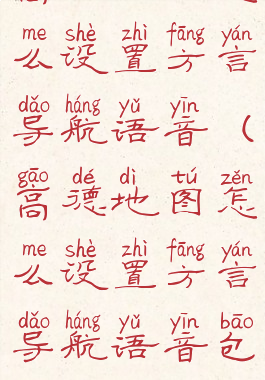 me shè zhì fāng yán
么设置方言
dǎo háng yǔ yīn
导航语音（
gāo dé dì tú zěn
高德地图怎
me shè zhì fāng yán
么设置方言
dǎo háng yǔ yīn bāo
导航语音包